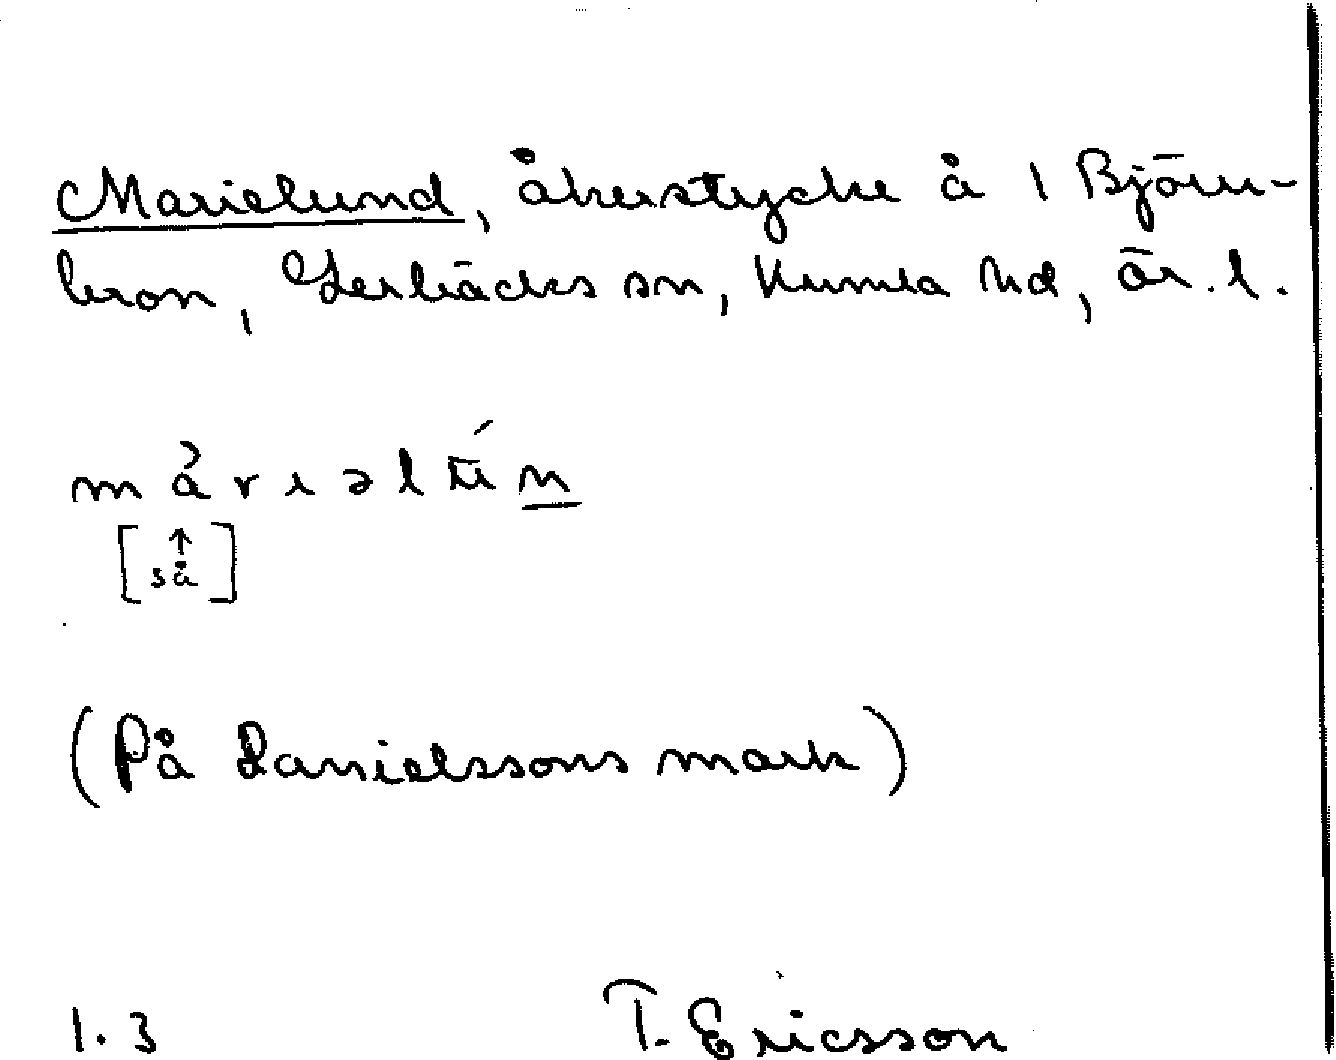 Marielund, åkerstycke å 1 Björn-
bron, Lerbäcks sn, Kumla hd, ör. l.
[så]
(På Danielssons mark)
1.3 T. Ericsson